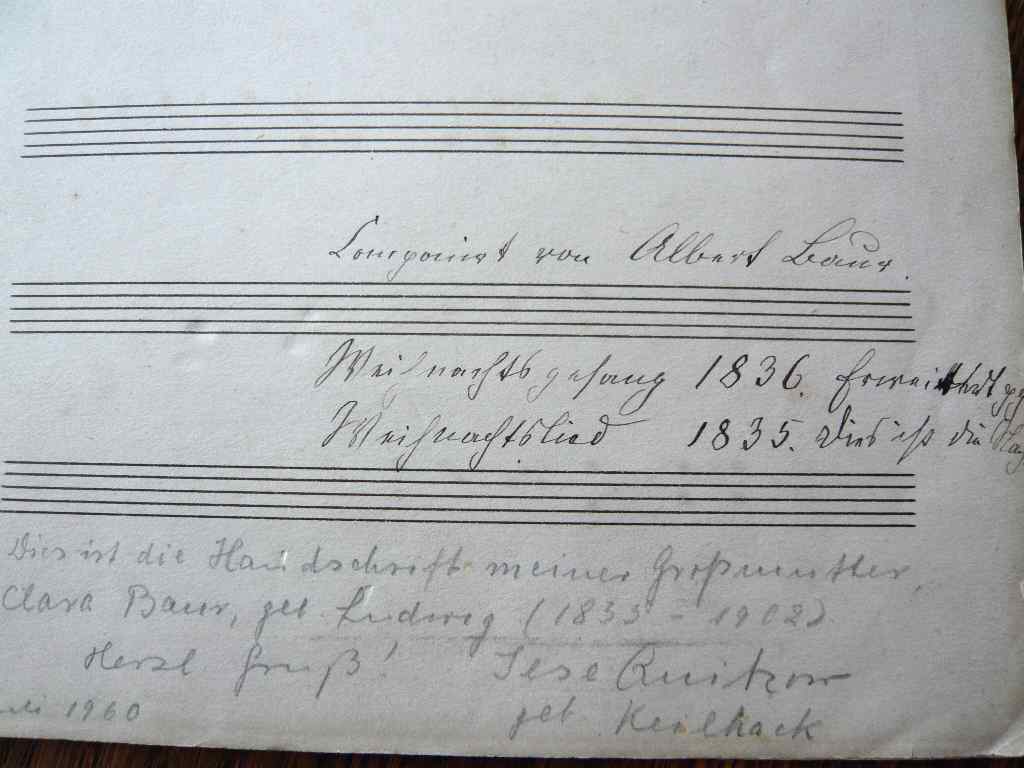 Componirt von Albert Baur.
Weihnachtsgesang 1836. Erweitert
Weihnachtslied 1835. Dies ist die
Dies ist die Handschrift meiner Großmutter,
Clara Baur, geb. Ludwig (1833 - 1902)
Herzl Gruß! Quitzow
1960 geb. Keilhack